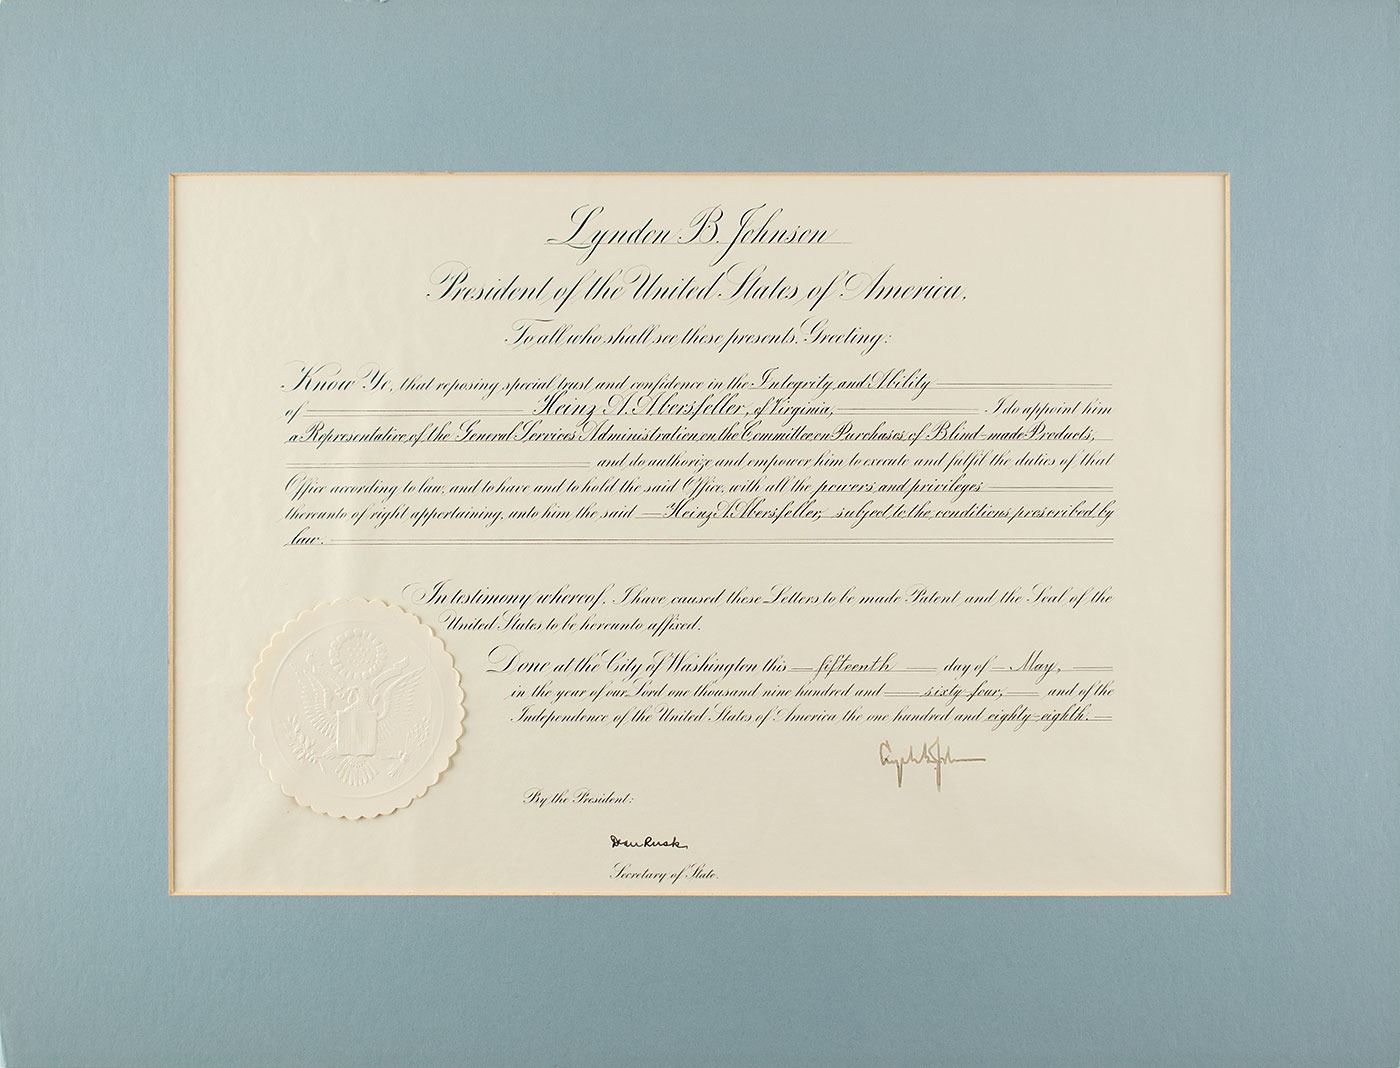 Lyndon B. Johnson
President of the United States of America.
To all who shall see these presents, Greeting:
Know Ye, that reposing special trust and confidence in the Integrity and Ability
of Heinz A. Abersfeller, of Virginia, I do appoint him
a Representative of the General Services Administration on the Committee on Purchases of Blind-made Products,
and do authorize and empower him to execute and fulfil the duties of that
Office according to law, and to have and to hold the said Office, with all the powers and privileges
thereunto of right appertaining, unto him the said Heinz A. Abersfeller, subject to the conditions prescribed by
law.
In testimony whereof, I have caused these Letters to be made Patent and the Seal of the
United States to be hereunto affixed.
Done at the City of Washington this fifteenth day of May,
in the year of our Lord one thousand nine hundred and sixty-four, and of the
Independence of the United States of America the one hundred and eighty-eighth.
Lyndon B. Johnson
By the President:
Dean Rusk
Secretary of State.